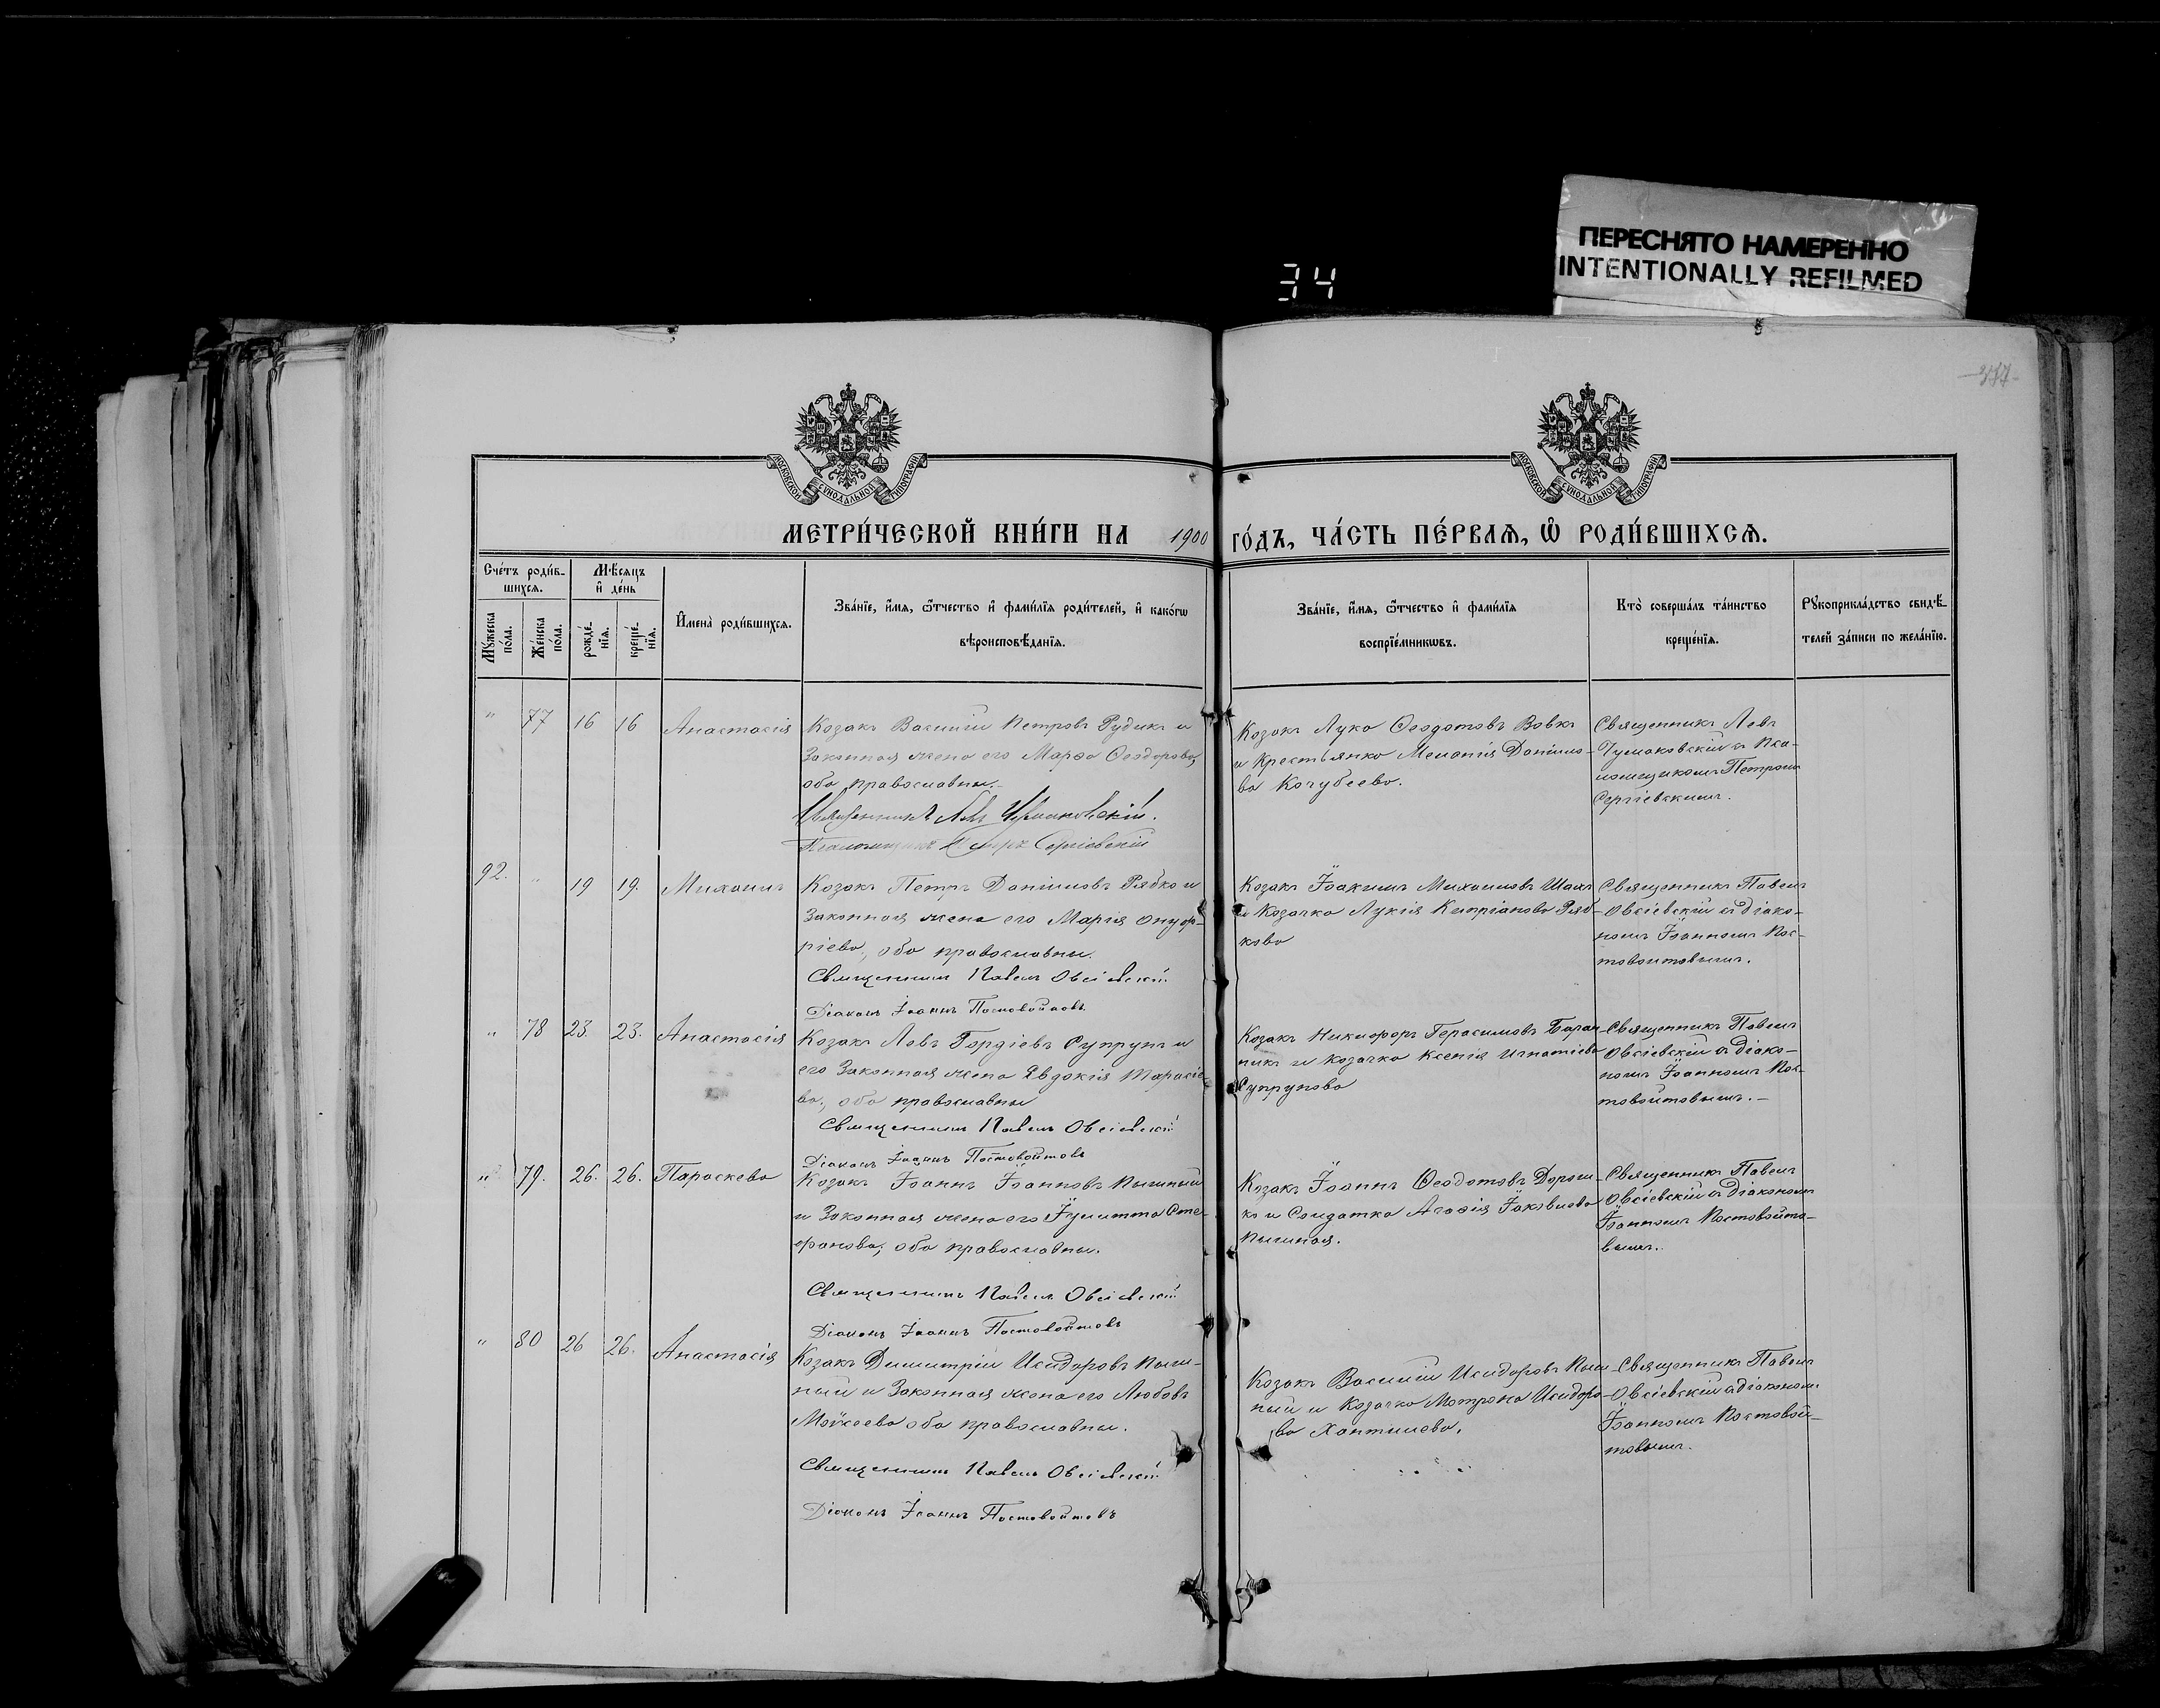 34
ПЕРЕСНЯТО НАМЕРЕННО
INTENTIONALLY REFILMED
377
МОСКОВСКОЙ СѴНОДАЛЬНОЙ ТИПОГРАФІИ
МОСКОВСКОЙ СѴНОДАЛЬНОЙ ТИПОГРАФІИ
МЕТРИ́ЧЕСКОЙ КНИ́ГИ НА 1900 ГО́ДЪ, ЧА́СТЬ ПЕ́РВАѦ, Ѡ҆ РОДИ́ВШИХСѦ.
Сче́тъ роди́в-
шихсѧ.
Мѣ́сѧцъ
и҆ де́нь
Мꙋ́жеска
по́ла.
Же́нска
по́ла.
рожде́-
нїѧ.
креще́-
нїѧ.
И҆мена̀ роди́вшихсѧ.
Зва́нїе, и҆́мѧ, ѻ҆́тчество и҆ фами́лїѧ роди́телей, и҆ како́гѡ
вѣроисповѣ́данїѧ.
Зва́нїе, и҆́мѧ, ѻ҆́тчество и҆ фами́лїѧ
воспрїе́мникѡвъ.
Кто̀ соверша́лъ та́инство
креще́нїѧ.
Рꙋкоприкла́дство свидѣ́-
телей за́писи по жела́нїю.
" 77 16 16 Анастасія
Козакъ Василій Петровъ Рудикъ и
Законная жена его Марѳа Ѳеодорова,
оба православны.
Священникъ Левъ Чумаковскій.
Псаломщикъ Петръ Сергіевскій
Козакъ Лука Ѳеодотовъ Вовкъ
и Крестьянка Меланія Даніило-
ва Кочубеева.
Священникъ Левъ
Чумаковскій съ Пса-
ломщикомъ Петромъ
Сергіевскимъ.
92. " 19 19. Михаилъ
Козакъ Петръ Даніиловъ Рябко и
Законная жена его Марія Онуф-
ріева, оба православны.
Священникъ Павелъ Овсіевскій
Діаконъ Іоаннъ Постовойтовъ
Козакъ Іоакимъ Михаиловъ Шахъ
и Козачка Лукія Кипріанова Ряб-
кова
Священникъ Павелъ
Овсіевскій съ Діако-
номъ Іоанномъ Пос-
товойтовымъ.
" 78 23. 23. Анастасія
Козакъ Левъ Гордіевъ Супрунъ и
его Законная жена Явдокія Тарасіе-
ва, оба православны
Священникъ Павелъ Овсіевскій
Діаконъ Іоаннъ Постовойтовъ
Козакъ Никифоръ Герасимовъ Баран-
никъ и Козачка Ксенія Игнатіева
Супрунова
Священникъ Павелъ
Овсіевскій съ Діако-
номъ Іоанномъ Пос-
товойтовымъ.-
" 79. 26. 26. Параскева
Козакъ Іоаннъ Іоанновъ Пышный
и Законная жена его Іулитта Сте-
фанова, оба православны.
Священникъ Павелъ Овсіевскій
Діаконъ Іоаннъ Постовойтовъ
Козакъ Іоаннъ Ѳеодотовъ Дорош-
ко и Солдатка Агаѳія Іаковлева
Пышная.
Священникъ Павелъ
Овсіевскій съ Діакономъ
Іоанномъ Постовойто-
вымъ.
" 80 26 26. Анастасія
Козакъ Димитрій Исидоровъ Пыш-
ный и Законная жена его Любовь
Моѵсеева оба православны.
Священникъ Павелъ Овсіевскій
Діаконъ Іоаннъ Постовойтовъ
Козакъ Василій Исидоровъ Пыш-
ный и Козачка Мотрона Исидоро-
ва Хантилева.
Священникъ Павелъ
Овсіевскій съ Діакономъ
Іоанномъ Постовой-
товымъ.